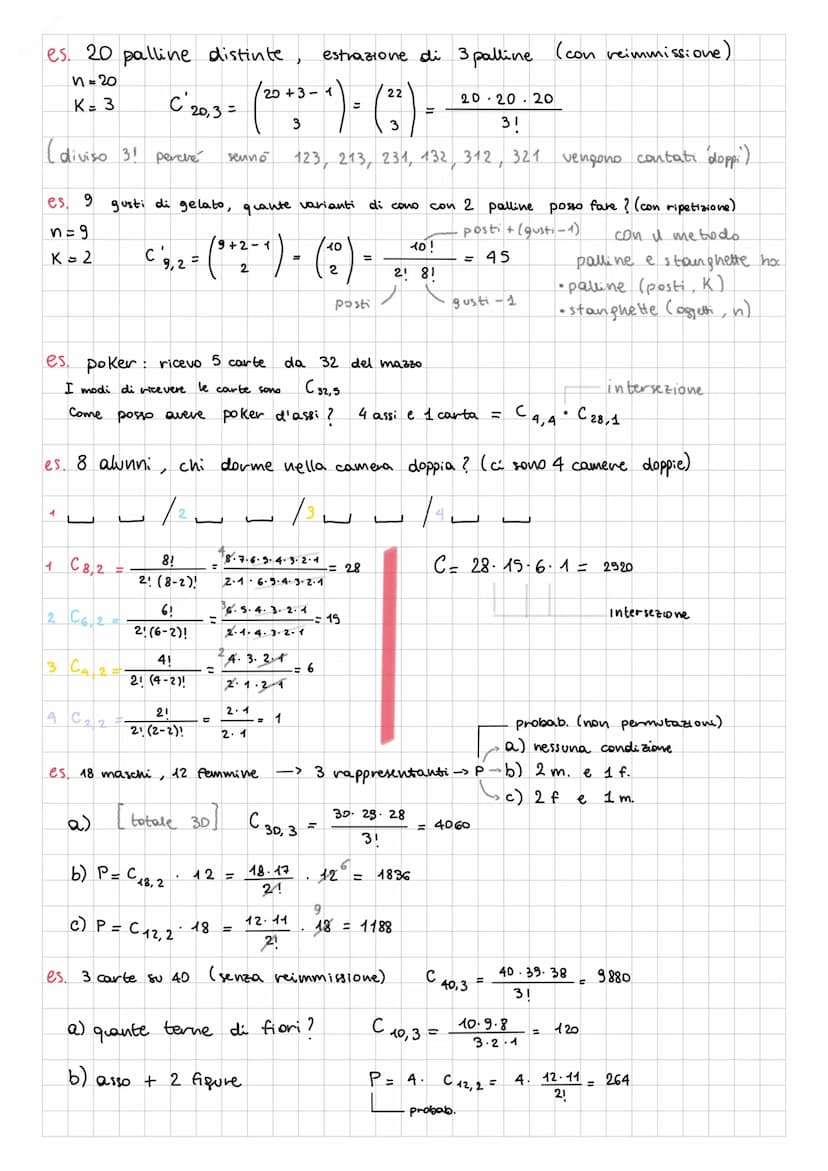 es. 20 palline distinte, estrazione di 3 palline (con reimmissione)
n=20
K=3 C'20,3 = (20+3-1 3) = (22 3) = 20·20·20 / 3!
(diviso 3! perché sennò 123, 213, 231, 132, 312, 321 vengono contati "doppi")
es. 9 gusti di gelato, quante varianti di cono con 2 palline posso fare? (con ripetizione)
n=9
K=2 C'9,2 = (9+2-1 2) = (10 2) = 10! / 2! 8! = 45
posti+(gusti-1)
posti gusti-1
con il metodo
palline e stanghette ho:
• palline (posti, K)
• stanghette (oggetti, n)
es. poker: ricevo 5 carte da 32 del mazzo
I modi di ricevere le carte sono C32,5
intersezione
Come posso avere poker d'assi? 4 assi e 1 carta = C4,4 · C28,1
es. 8 alunni, chi dorme nella camera doppia? (ci sono 4 camere doppie)
1 _ _ / 2 _ _ / 3 _ _ / 4 _ _
1 C8,2 = 8! / 2!(8-2)! = 4 8·7·6·5·4·3·2·1 / 2·1·6·5·4·3·2·1 = 28
C= 28·15·6·1 = 2520
intersezione
2 C6,2 = 6! / 2!(6-2)! = 3 6·5·4·3·2·1 / 2·1·4·3·2·1 = 15
3 C4,2 = 4! / 2!(4-2)! = 2 4·3·2·1 / 2·1·2·1 = 6
4 C2,2 = 2! / 2!(2-2)! = 2·1 / 2·1 = 1
probab. (non permutazioni)
a) nessuna condizione
es. 18 maschi, 12 femmine → 3 rappresentanti → P → b) 2 m. e 1 f.
c) 2 f e 1 m.
a) [totale 30] C30,3 = 30·29·28 / 3! = 4060
b) P= C18,2 · 12 = 18·17 / 2! · 12 6 = 1836
c) P= C12,2 · 18 = 12·11 / 2! · 18 9 = 1188
es. 3 carte su 40 (senza reimmissione) C40,3 = 40·39·38 / 3! = 9880
a) quante terne di fiori? C10,3 = 10·9·8 / 3·2·1 = 120
b) asso + 2 figure P= 4· C12,2 = 4· 12·11 / 2! = 264
probab.